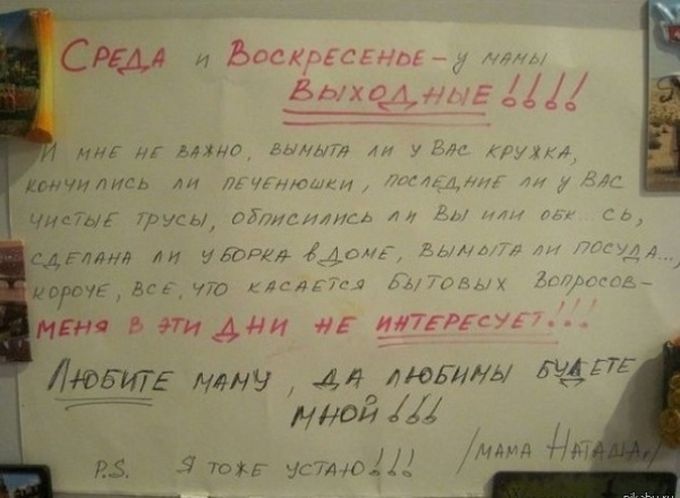 СРЕДА и ВОСКРЕСЕНЬЕ – у МАМЫ
ВЫХОДНЫЕ!!!!
И МНЕ НЕ ВАЖНО, ВЫМЫТА ЛИ У ВАС КРУЖКА,
КОНЧИЛИСЬ ЛИ ПЕЧЕНЮШКИ, ПОСЛЕДНИЕ ЛИ У ВАС
ЧИСТЫЕ ТРУСЫ, ОБПИСИЛИСЬ ЛИ ВЫ ИЛИ ОБК...СЬ,
СДЕЛАНА ЛИ УБОРКА В ДОМЕ, ВЫМЫТА ЛИ ПОСУДА...,
КОРОЧЕ, ВСЕ, ЧТО КАСАЕТСЯ БЫТОВЫХ ВОПРОСОВ –
МЕНЯ В ЭТИ ДНИ НЕ ИНТЕРЕСУЕТ!!!
ЛЮБИТЕ МАМУ, ДА ЛЮБИМЫ БУДЕТЕ
МНОЙ!!!
/МАМА НАТАША/
P.S. Я ТОЖЕ УСТАЮ!!!
pikabu.ru